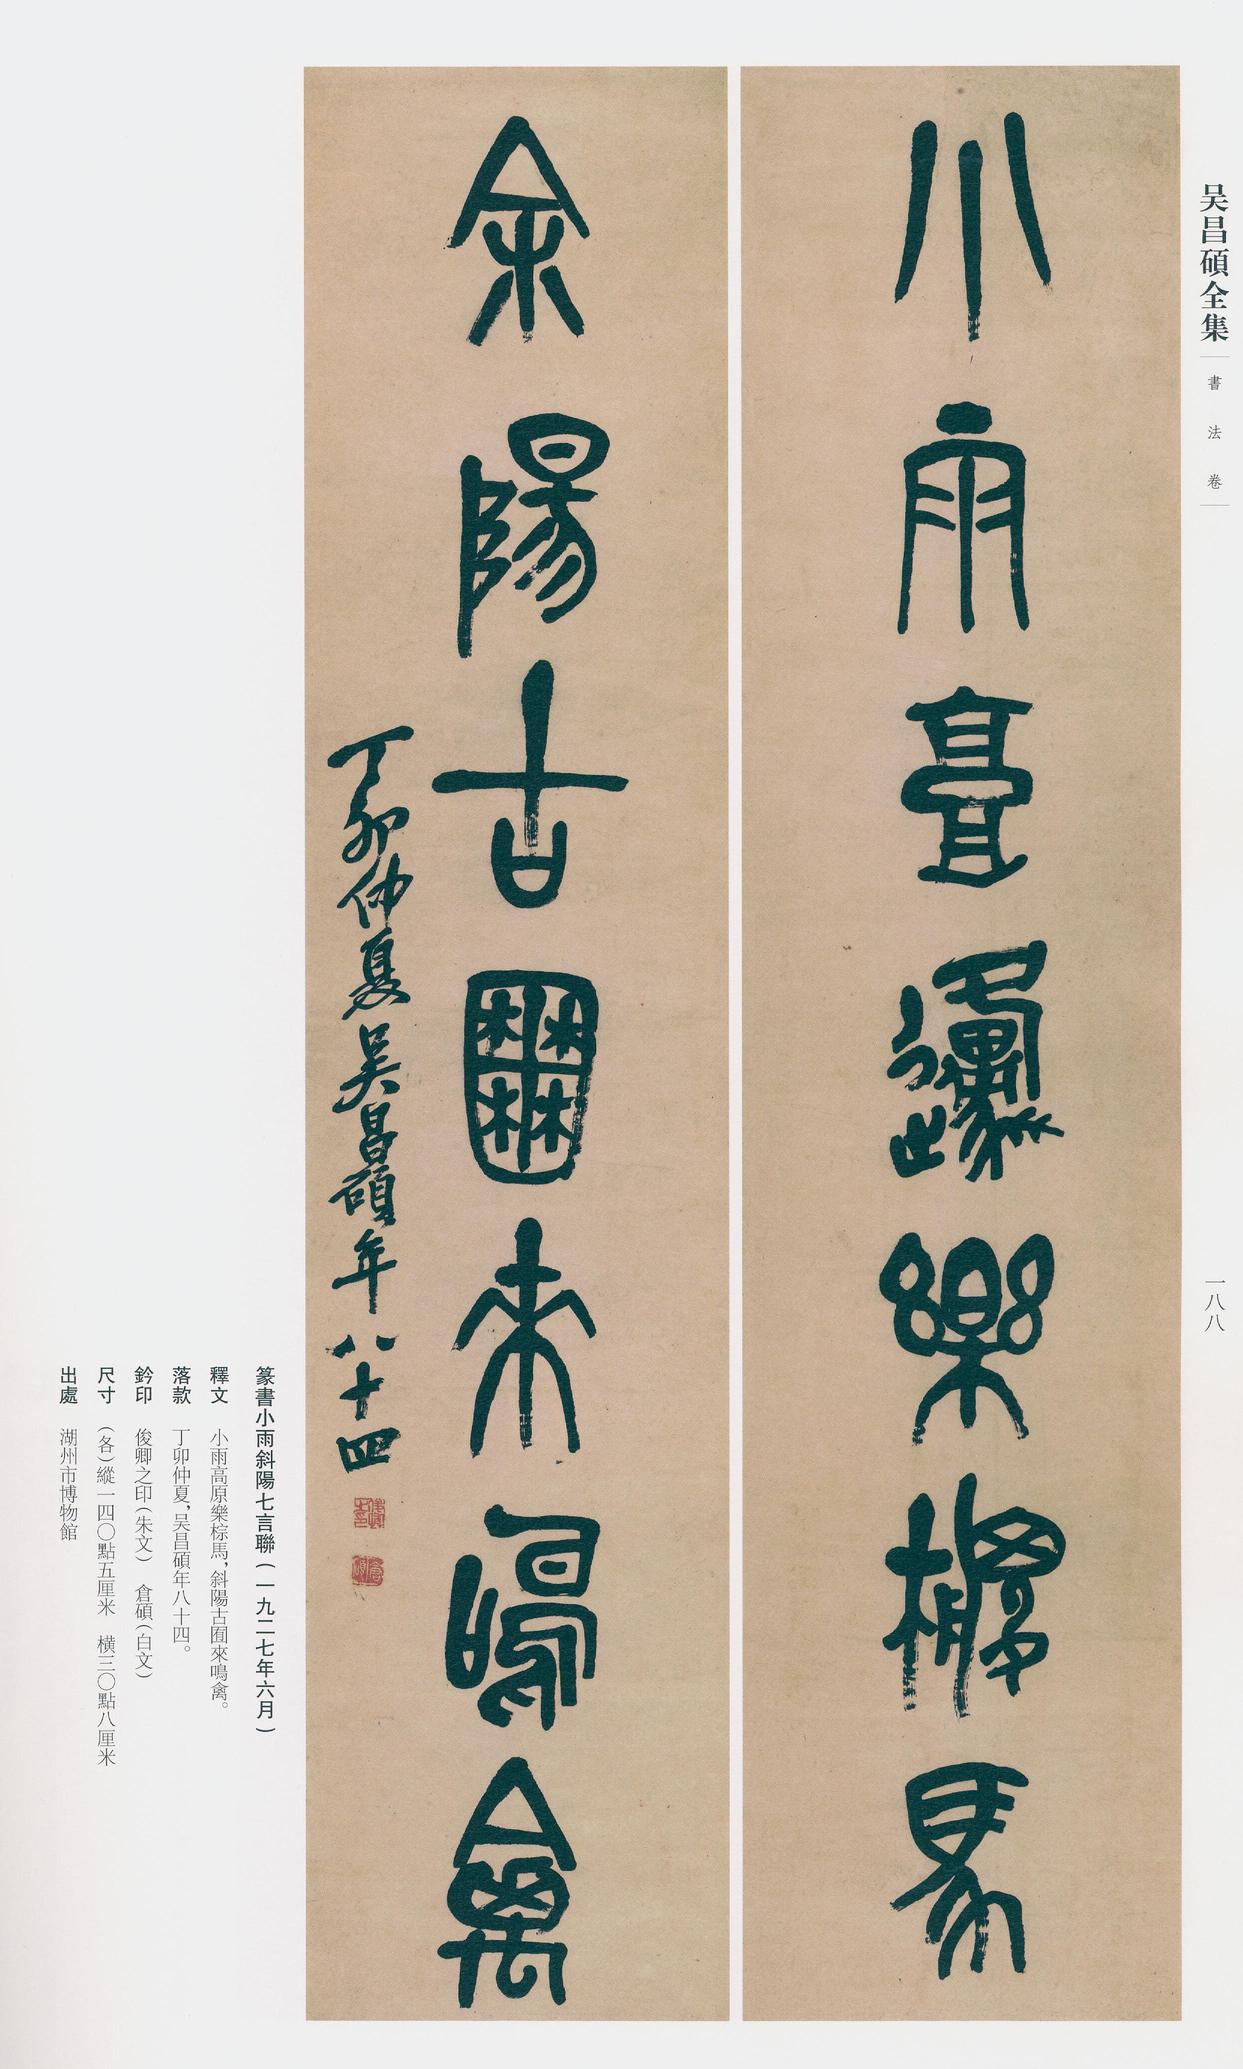 吴昌碩全集
書法卷
一八八
小雨高原樂椶馬
余陽古囿来鳴禽
丁卯仲夏吴昌碩年八十四
篆書小雨斜陽七言聯（一九二七年六月）
釋文　小雨高原樂棕馬，斜陽古囿來鳴禽。
落款　丁卯仲夏，吴昌碩年八十四。
鈐印　俊卿之印（朱文）　倉碩（白文）
尺寸　（各）縱一四〇點五厘米　橫三〇點八厘米
出處　湖州市博物館